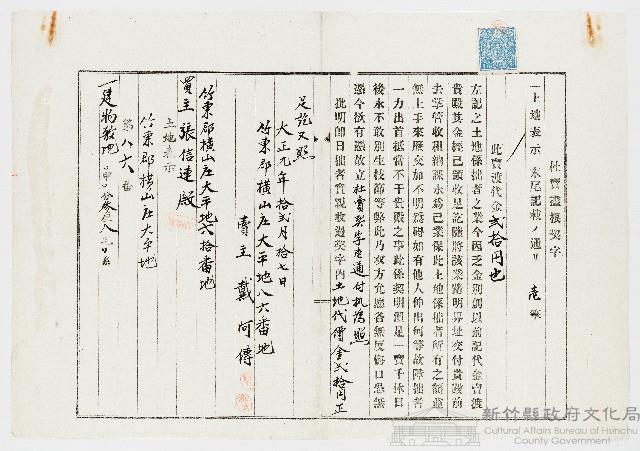 杜賣盡根契字
一土地表示 末尾記載ノ通リ 壱筆
此賣渡代金貳拾円也
左記之土地係拙者之業今因乏金別創以前記代金賣渡
貴殿其金經已領收足訖隨將該業踏明界址交付貴殿前
去掌管收租納課永為己業保此土地係拙者所有之額並
無上手來歷交加不明為碍如有他人伸出何等故障拙者
一力出首抵當不干貴殿之事此係契明價足一賣千休日
後永不敢別生枝節等弊此乃双方允愿各無反悔口恐無
憑今欲有憑立杜賣契字壱通付執為照
批明即日拙者實親收過契字內土地代價金貳拾円正
足訖又照
大正九年拾貳月拾七日
竹東郡橫山庄大平地八六番地
賣主 戴阿傳
竹東郡橫山庄大平地六拾番地
買主 張信達殿
土地表示
竹東郡橫山庄大平地
第八六番
一建物敷地
新竹縣政府文化局
Cultural Affairs Bureau of Hsinchu
County Government